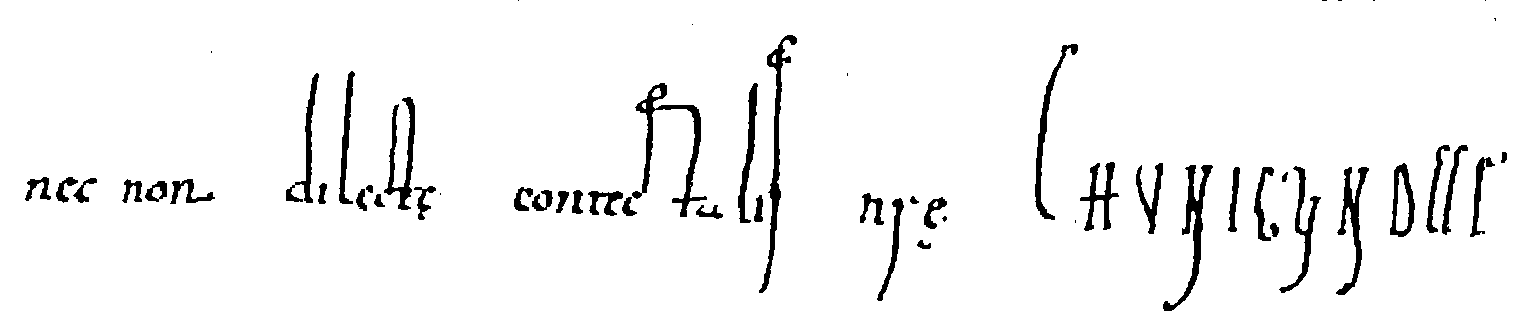 nec non dilectę contectalis nrę CHVNIGVNDESSE